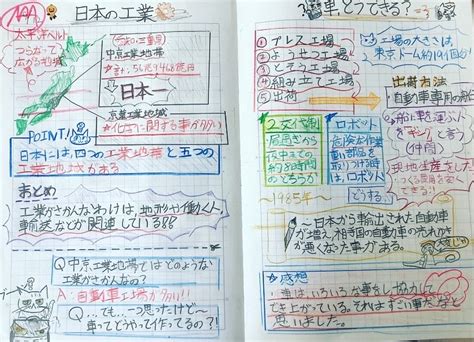 AAA
日本の工業
太平洋ベルト
つらなって
広がる地域
中京工業地帯
日本一
京葉工業地域
☆化学に関する事が多い
POINT!!
日本には、四つの工業地帯と五つの
工業地域がある
まとめ
工業がさかんなわけは、地形や働く人、
輸送などが関連している!!
Q 中京工業地帯ではどのような
工業がさかんなの?
A:自動車工場が多い!!
Q…でも…一つ思ったけど〜
車ってどうやって作ってるの?!
車、どうできる?
①プレス工場
②ようせつ工場
③とそう工場
④組み立て工場
⑤出荷
工場の大きさは
東京ドーム約191個分
出荷方法
・自動車専用の船
2交代制
昼間ぎから
夜中までの
約8時間の
どちらか
ロボット
危険な作業
重い部品を
取りつける時
は、ロボット
現地生産をした
〜1985年〜
日本から輸出された自動車
が増え、相手国の自動車の売れ行き
が悪くなった事がある。
感想
車は、いろいろな事をし協力して
でき上がっている。それはすごい事だなと
思いました。